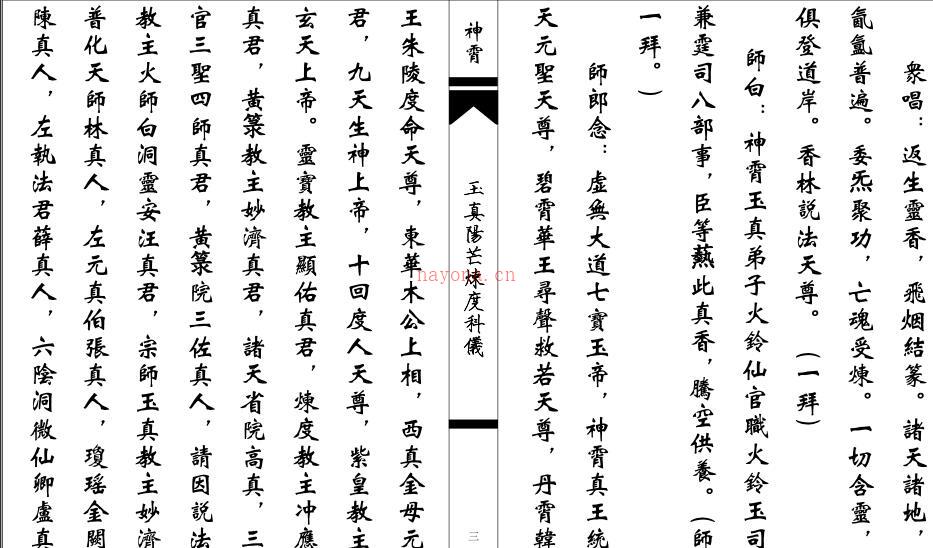 眾唱：返生靈香，飛烟結篆。諸天諸地，
氤氳普遍。委炁聚功，亡魂受煉。一切含靈，
俱登道岸。香林説法天尊。（一拜）
師白：神霄玉真弟子火鈴仙官職火鈴玉司
兼霆司八部事，臣等爇此真香，騰空供養。（師
一拜。）
師郎念：虛無大道七寶玉帝，神霄真王統
天元聖天尊，碧霄華王尋聲救若天尊，丹霄韓
神霄
玉真陽芒煉度科儀
三
nayona.cn
王朱陵度命天尊，東華木公上相，西真金母元
君，九天生神上帝，十回度人天尊，紫皇教主
玄天上帝。靈寶教主顯佑真君，煉度教主冲應
真君，黃籙教主妙濟真君，諸天省院高真，三
官三聖四師真君，黃籙院三佐真人，請因説法
教主火師白洞靈安汪真君，宗師玉真教主妙濟
普化天師林真人，左元真伯張真人，瓊瑶金闕
陳真人，左執法君薛真人，六陰洞微仙卿盧真